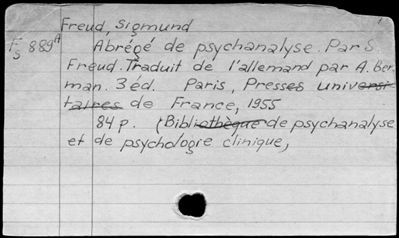 Freud, Sigmund
Fs 889A Abrégé de psychanalyse. Par S.
Freud. Traduit de l'allemand par A. Ber-
man. 3 éd. Paris, Presses universi-
taires de France, 1955
84 p. (Bibliothèque de psychanalyse
et de psychologie clinique,